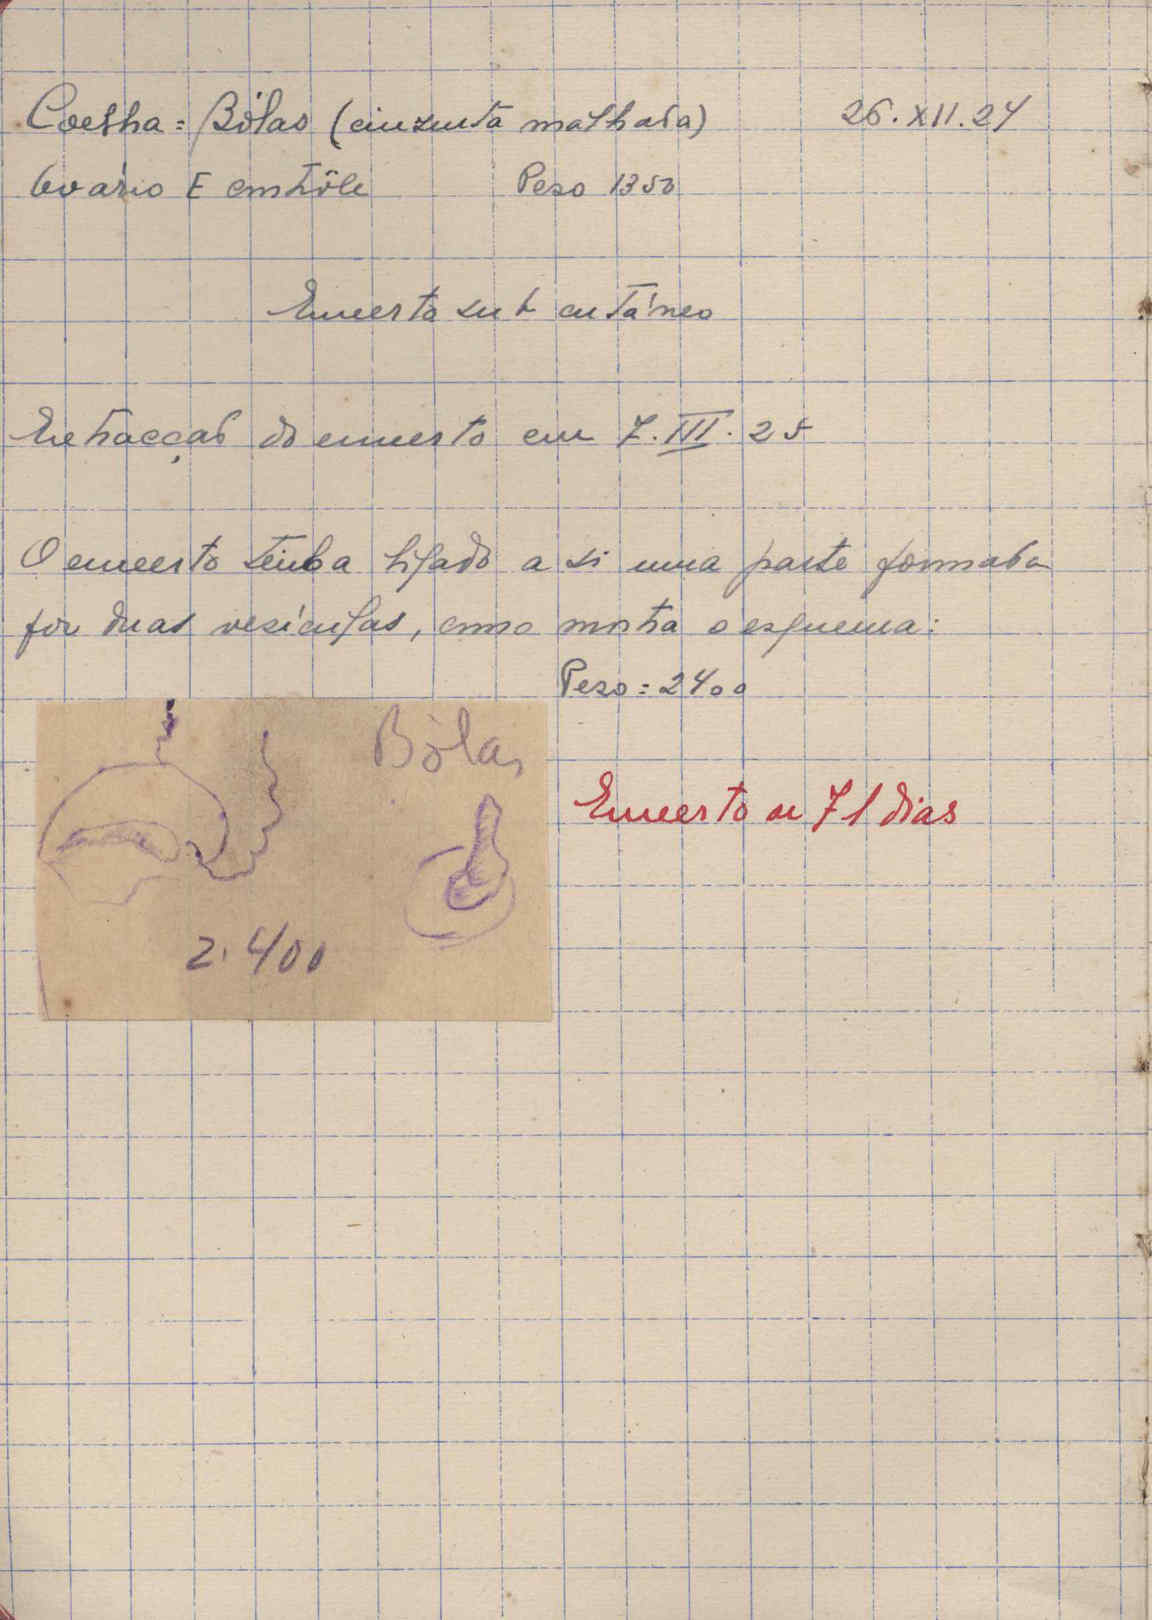 Coelha = Bólas (cinzenta malhada) 26.XII.24
Ovário E contrôle Peso 1350
Enxerto sub cutáneo
Extracção do enxerto em 7.III.25
O enxerto tinha ligado a si uma parte formada
por duas vesículas, como mostra o esquema:
Peso = 2400
Bólas
Enxerto de 71 dias
2.400